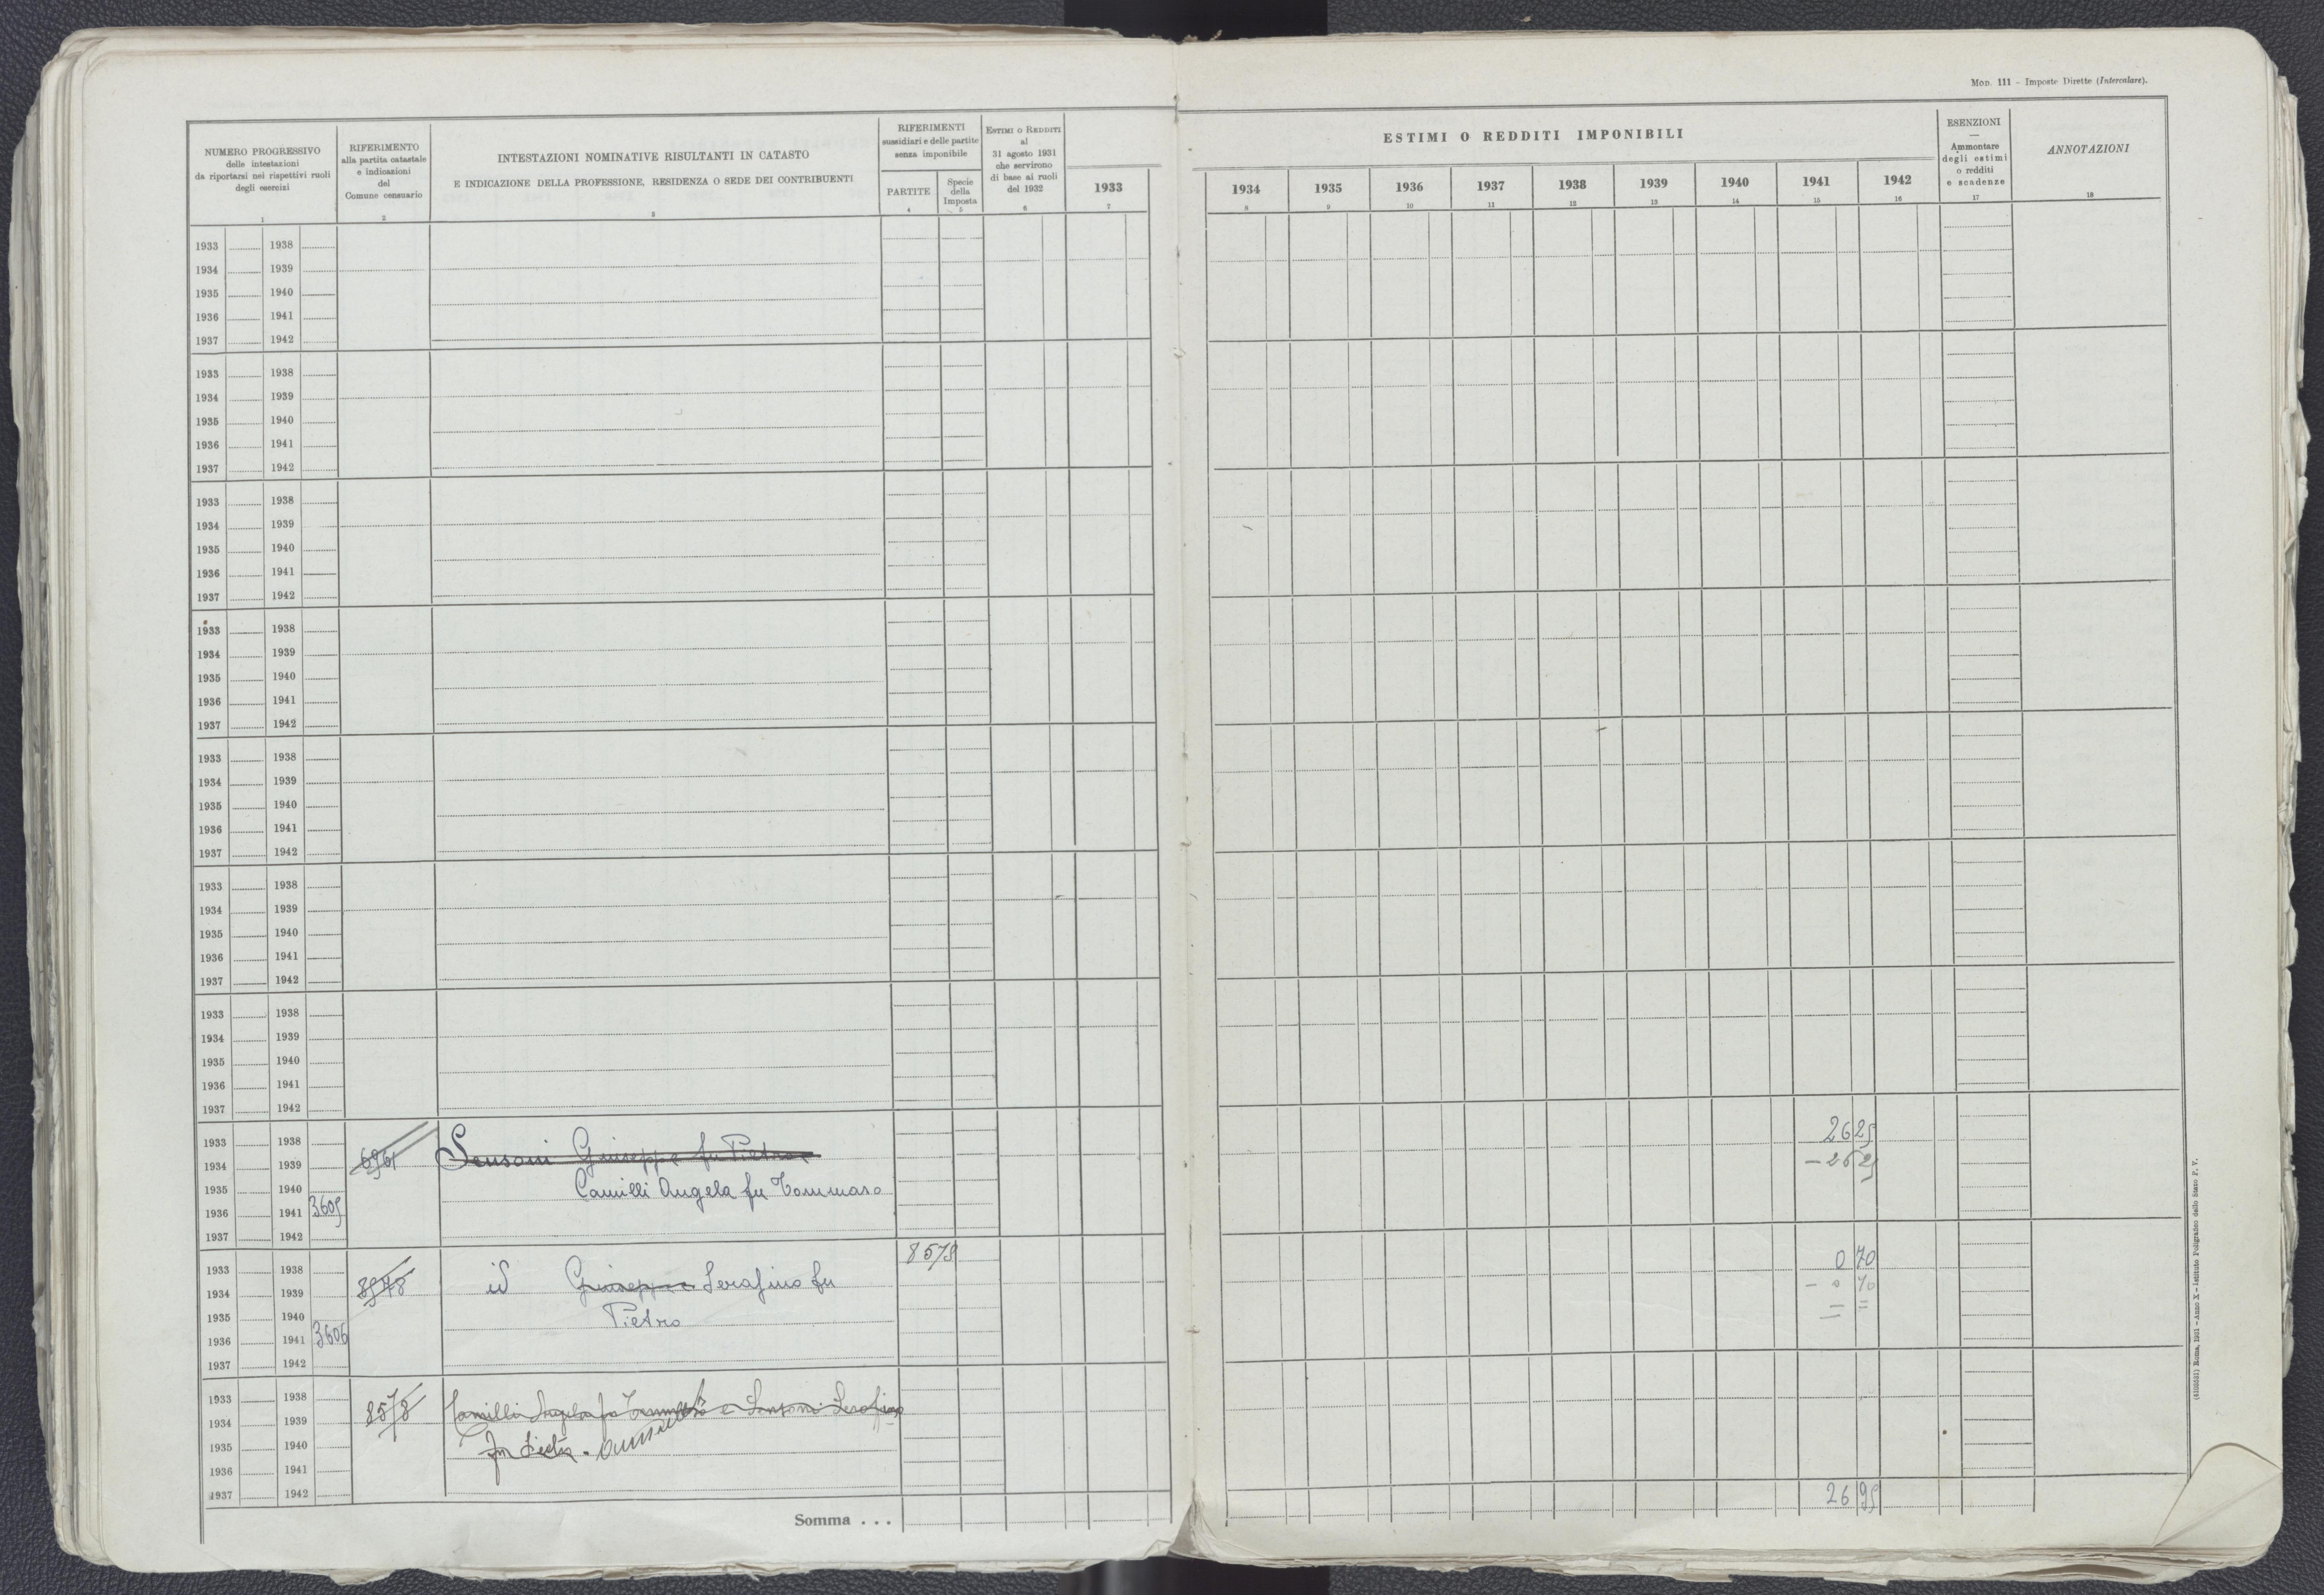 Mod. 111 – Imposte Dirette (Intercalare).
NUMERO PROGRESSIVO
delle intestazioni
da riportarsi nei rispettivi ruoli
degli esercizi
1
RIFERIMENTO
alla partita catastale
e indicazioni
del
Comune censuario
2
INTESTAZIONI NOMINATIVE RISULTANTI IN CATASTO
E INDICAZIONE DELLA PROFESSIONE, RESIDENZA O SEDE DEI CONTRIBUENTI
3
RIFERIMENTI
sussidiari e delle partite
senza imponibile
PARTITE
4
Specie
della
Imposta
5
Estimi o Redditi
al
31 agosto 1931
che servirono
di base ai ruoli
del 1932
6
ESTIMI O REDDITI IMPONIBILI
1933
7
1934
8
1935
9
1936
10
1937
11
1938
12
1939
13
1940
14
1941
15
1942
16
ESENZIONI
—
Ammontare
degli estimi
o redditi
e scadenze
17
ANNOTAZIONI
18
1933 1938
1934 1939
1935 1940
1936 1941
1937 1942
1933 1938
1934 1939
1935 1940
1936 1941
1937 1942
1933 1938
1934 1939
1935 1940
1936 1941
1937 1942
1933 1938
1934 1939
1935 1940
1936 1941
1937 1942
1933 1938
1934 1939
1935 1940
1936 1941
1937 1942
1933 1938
1934 1939
1935 1940
1936 1941
1937 1942
1933 1938
1934 1939
1935 1940
1936 1941
1937 1942
1933 1938 26 25
1934 1939 6961 Sensoni Giuseppe fu Pietro – 26 25
1935 1940 Camilli Angela fu Tommaso
1936 1941 3605
1937 1942
1933 1938 8579 0 70
1934 1939 id Giuseppe Serafino fu – 0 70
1935 1940 Pietro = =
1936 1941 3606
1937 1942
1933 1938
1934 1939 8578 Camilli Angela fu e Sensoni Serafino
1935 1940 fu Pietro
1936 1941
1937 1942
Somma . . . 26 95
(4103531) Roma, 1931 – Anno X – Istituto Poligrafico dello Stato P. V.